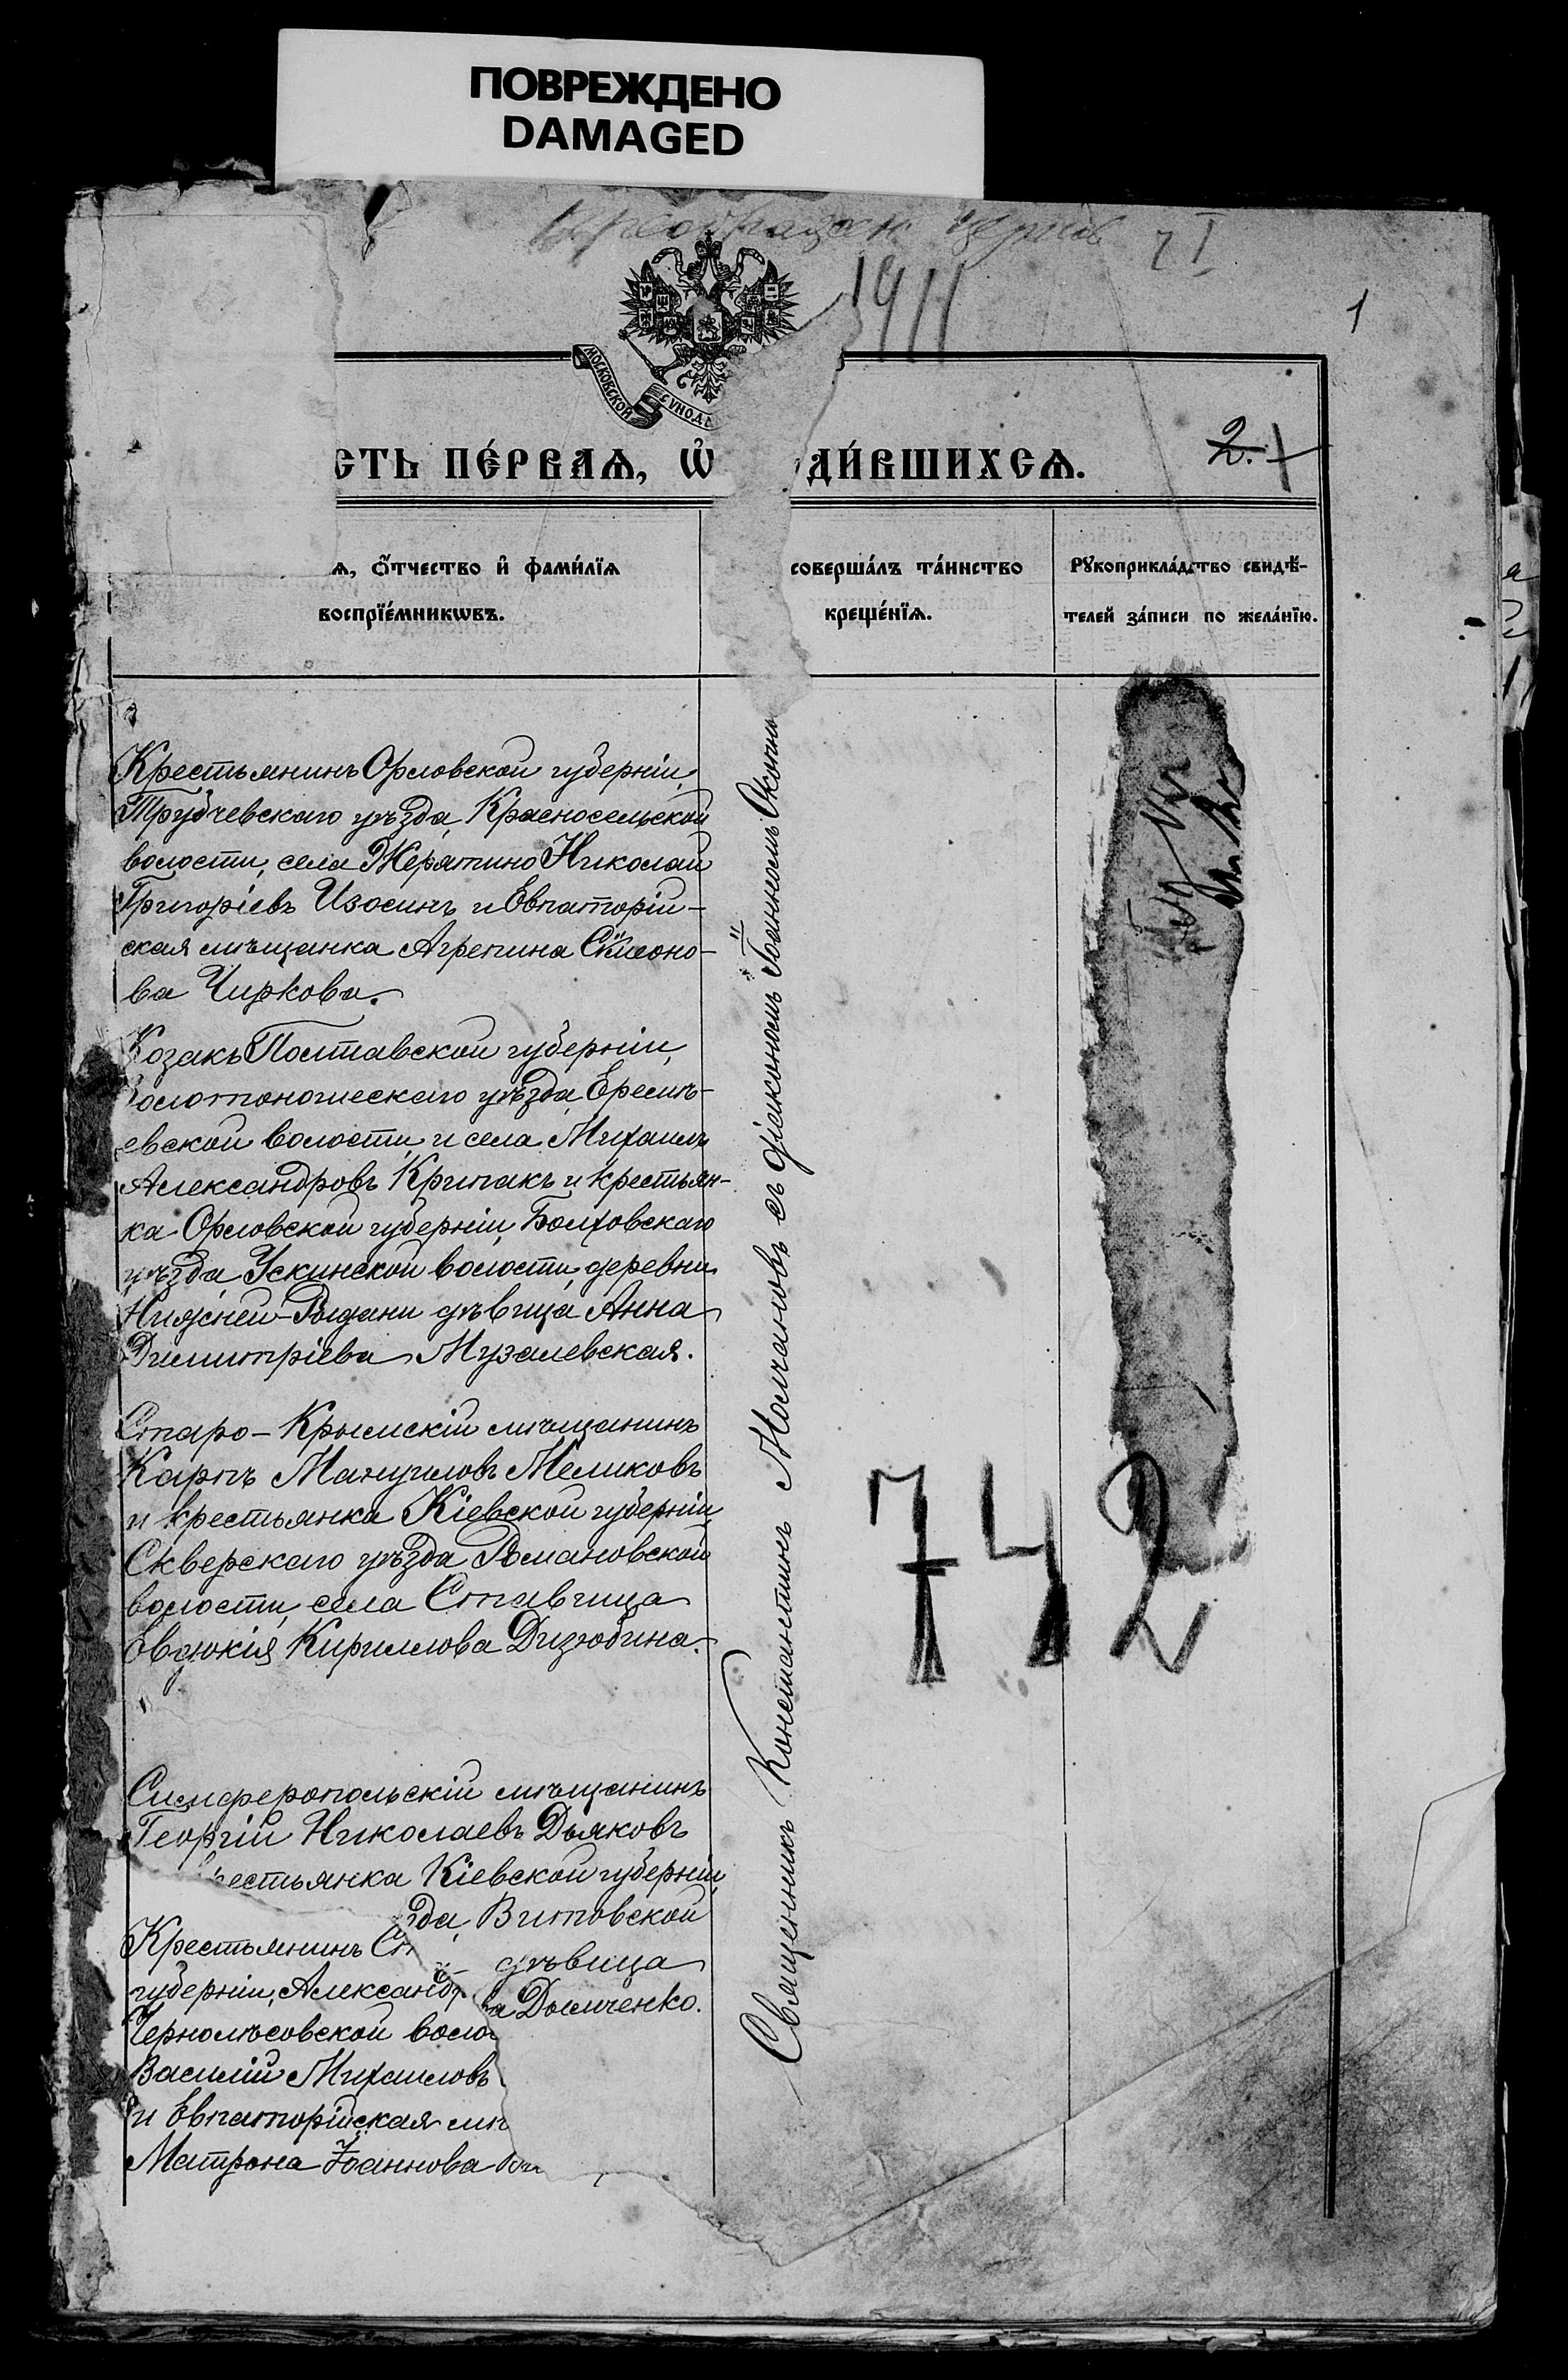 ПОВРЕЖДЕНО
DAMAGED
1911
I
1
МОСКОВСКОЙ
СѴНОДА
2. 1
СТЬ ПЕ́РВАѦ, Ѡ҆ ДИ́ВШИХСѦ.
ѧ, ѻ҆́тчество и҆ фами́лїѧ
воспрїе́мникѡвъ.
соверша́лъ та́инство
креще́нїѧ.
Рꙋкоприкла́дство свидѣ́-
телей за́писи по жела́нїю.
Крестьянинъ Орловской губерніи,
Трубчевскаго уѣзда, Красносельской
волости, села Жерятино Николай
Григоріевъ Изосинъ и Евпаторій-
ская мѣщанка Агрепина Сѵмеоно-
ва Чиркова.
Козакъ Полтавской губерніи,
Золотоношескаго уѣзда, Еремѣ-
евской волости и села Михаилъ
Александровъ Крипакъ и крестьян-
ка Орловской губерніи, Болховскаго
уѣзда, Ускинской волости, деревни
Нижней-Рыдани дѣвица Анна
Димитріева Музалевская.
Старо-Крымскій мѣщанинъ
Карпъ Мануиловъ Меликовъ
и крестьянка Кіевской губерніи,
Сквирскаго уѣзда, Романовской
волости, села Ставчица
Евдокія Кириллова Дизюбина.
Симферопольскій мѣщанинъ
Георгій Николаевъ Дьяковъ
рестьянка Кіевской губерніи,
зда, Витовской
дѣвица
ва Дымченко.
Крестьянинъ Ст
губерніи, Александр
Чернолѣсовской воло
Василій Михаиловъ
и Евпаторійская мѣ
Матрона Іоаннова
Священникъ Константинъ Молчановъ съ діакономъ Іоанномъ
742